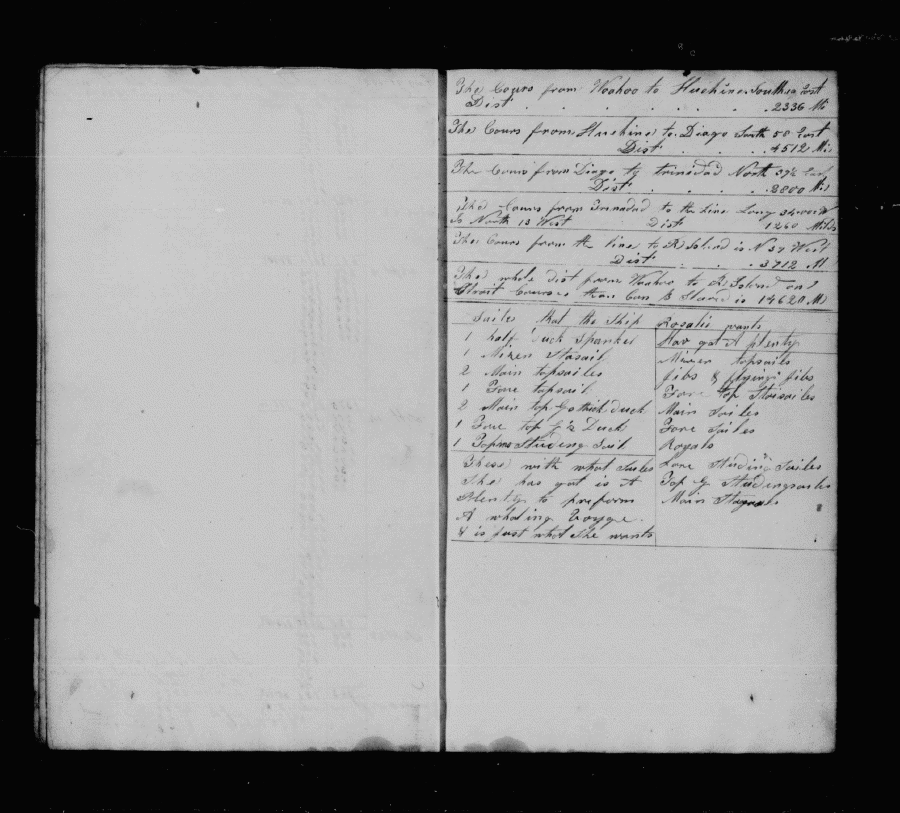 The Cours from Woahoo to Huehine South 19 East
Dist . . . . . . . . 2336 Mi
The Cours from Huehine to Diago South 58 East
Dist . . . . 4512 Mi
The Cours from Diago to trinidad North 37½ East
Dist . . . . 2800 Mi
The Cours from Trinadad to the Line Long 34.00 W
Is North 13 West Dist 1260 Miles
The Cours from the line to R Island is N 37 West
Dist . . . . 3712 M
The whole dist from Woahoo to R Island on
Strait Courses than Can B Stared is 14620 M
Sailes that the Ship Rosalie wants
1 half Duck Spanker
1 Mizen Stasail
2 Main topsailes
1 Fore topsail
2 Main top Gallant Duck
1 Fore top G s Duck
1 Topms Studing Sail
These with what Sailes
She has got is A
Plenty to preform
A whaling Voyge
& is just what She wants
Hav got A plenty
Mizen topsails
Jibs & flyingi Jibs
Fore top Staisailes
Main Sailes
Fore Sailes
Royals
Lore Studing Sailes
Top G Studingsailes
Main Staysails